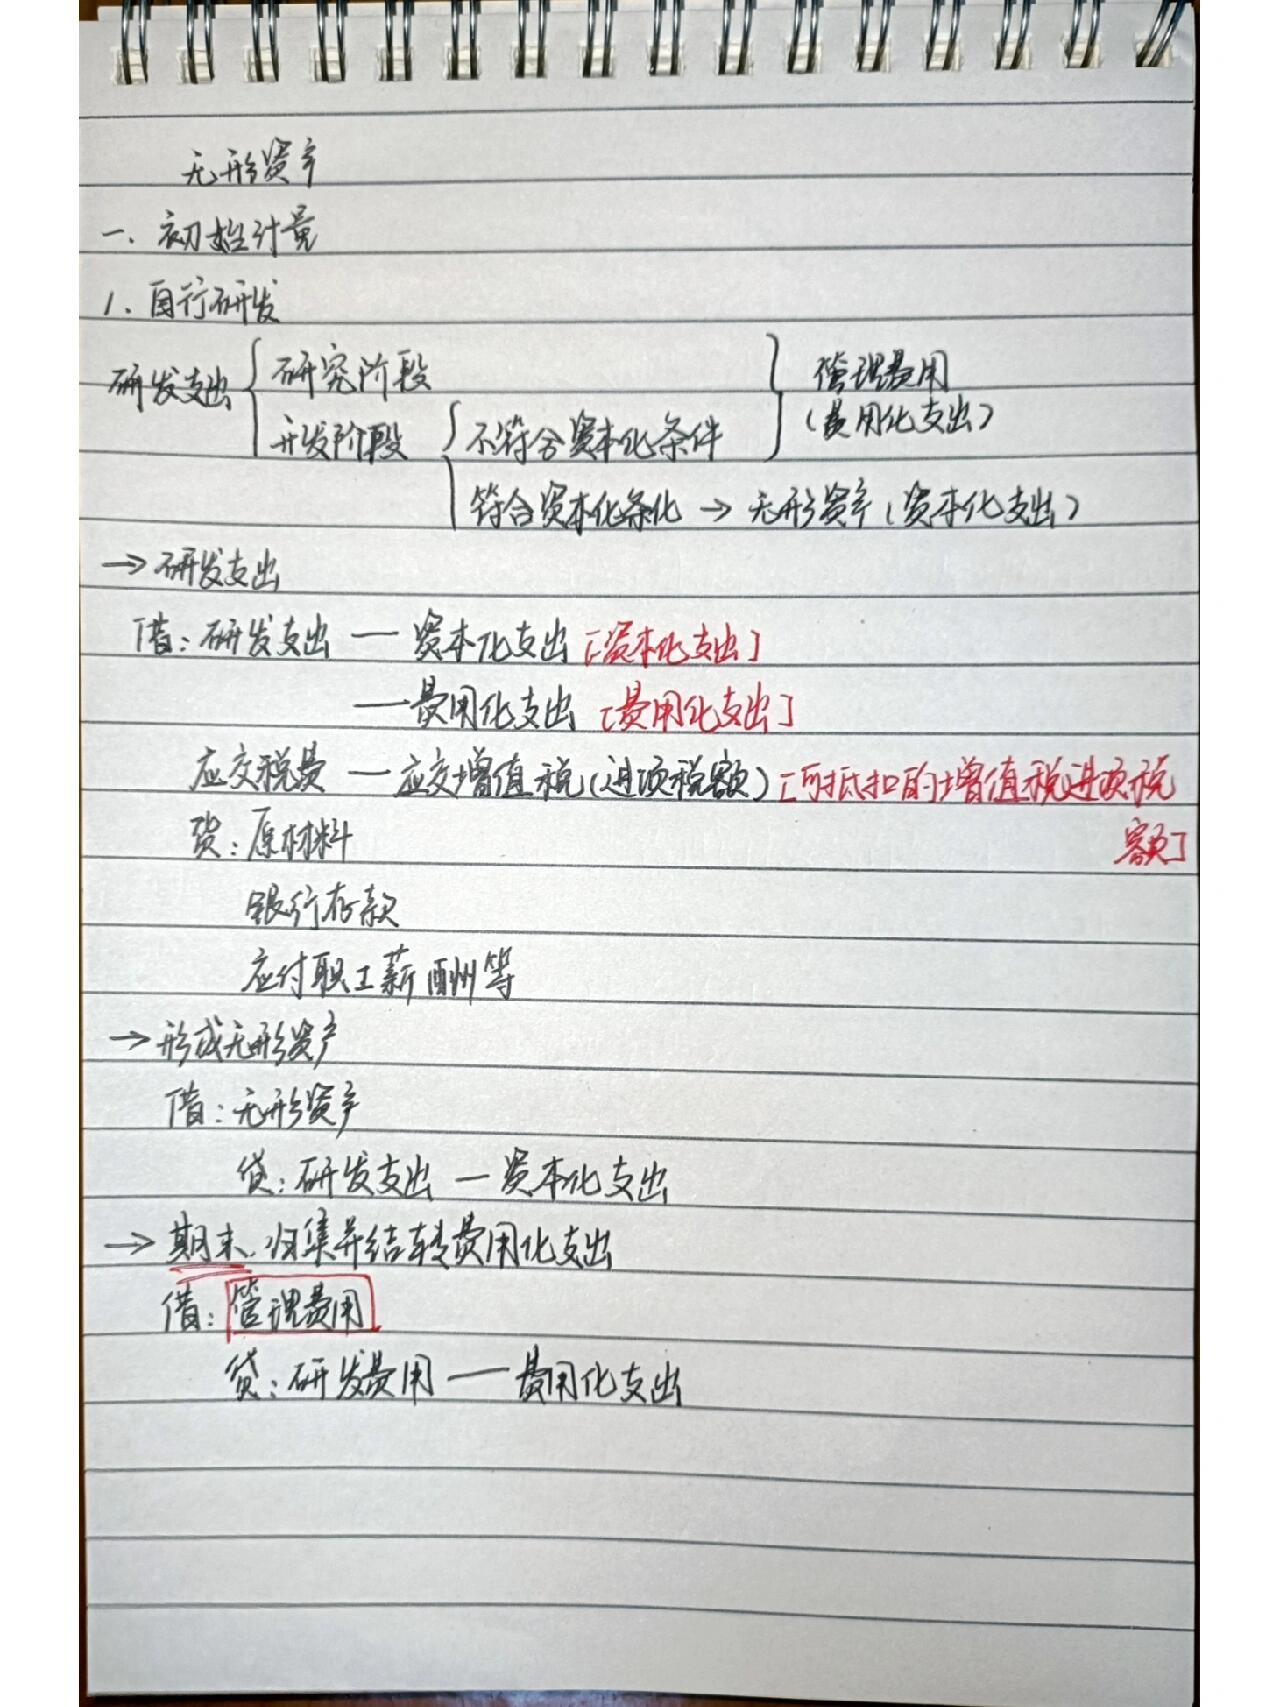 无形资产
一.初始计量
1.自行研发
研发支出{研究阶段 } 管理费用
{开发阶段{不符合资本化条件 (费用化支出)
{符合资本化条化→无形资产(资本化支出)
→研发支出
借:研发支出—资本化支出[资本化支出]
—费用化支出[费用化支出]
应交税费—应交增值税(进项税额)[可抵扣的增值税进项税
额]
贷:原材料
银行存款
应付职工薪酬等
→形成无形资产
借:无形资产
贷:研发支出—资本化支出
→期末,归集并结转费用化支出
借:管理费用
贷:研发费用—费用化支出